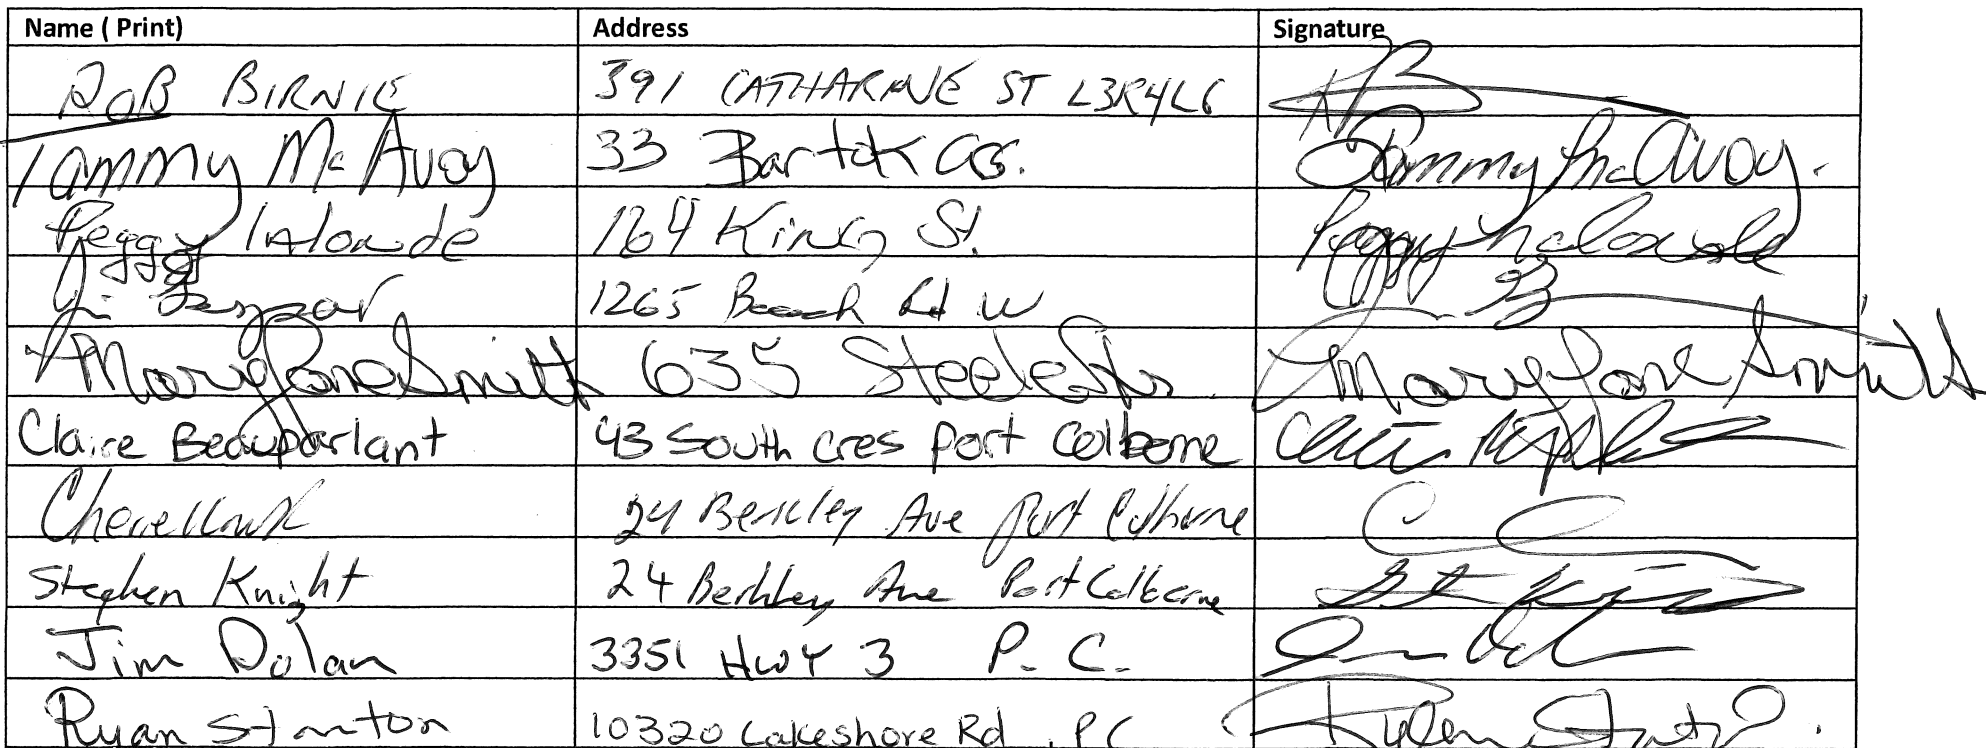 Name ( Print) Address Signature
ROB BIRNIE 391 CATHARINE ST L3R4L6
Tammy McAvoy 33 Bartok Cres. Tammy McAvoy.
Peggy Lalonde 164 King St. Peggy Lalonde
1265 Beach Rd W
Mary Jane Smith 635 Steele St. Mary Jane Smith
Claire Beauparlant 43 South cres port Colborne
24 Berkley Ave Port Colborne
Stephen Knight 24 Berkley Ave Port Colborne
Jim Dolan 3351 HWY 3 P. C.
Ryan Stanton 10320 Lakeshore Rd. PC